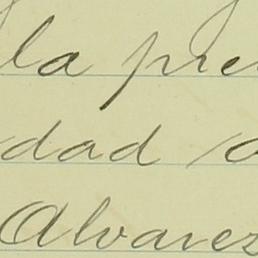 la pre
dad
Alvarez